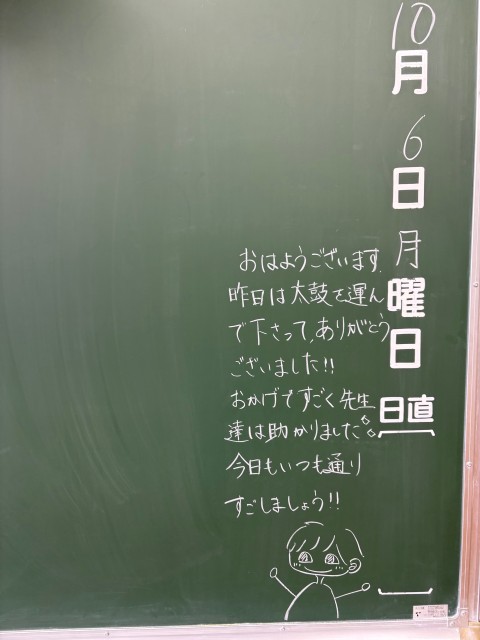 10月6日月曜日
日直
おはようございます.
昨日は太鼓を運ん
で下さって,ありがとう
ございました!!
おかげですごく先生
達は助かりました
今日もいつも通り
すごしましょう!!